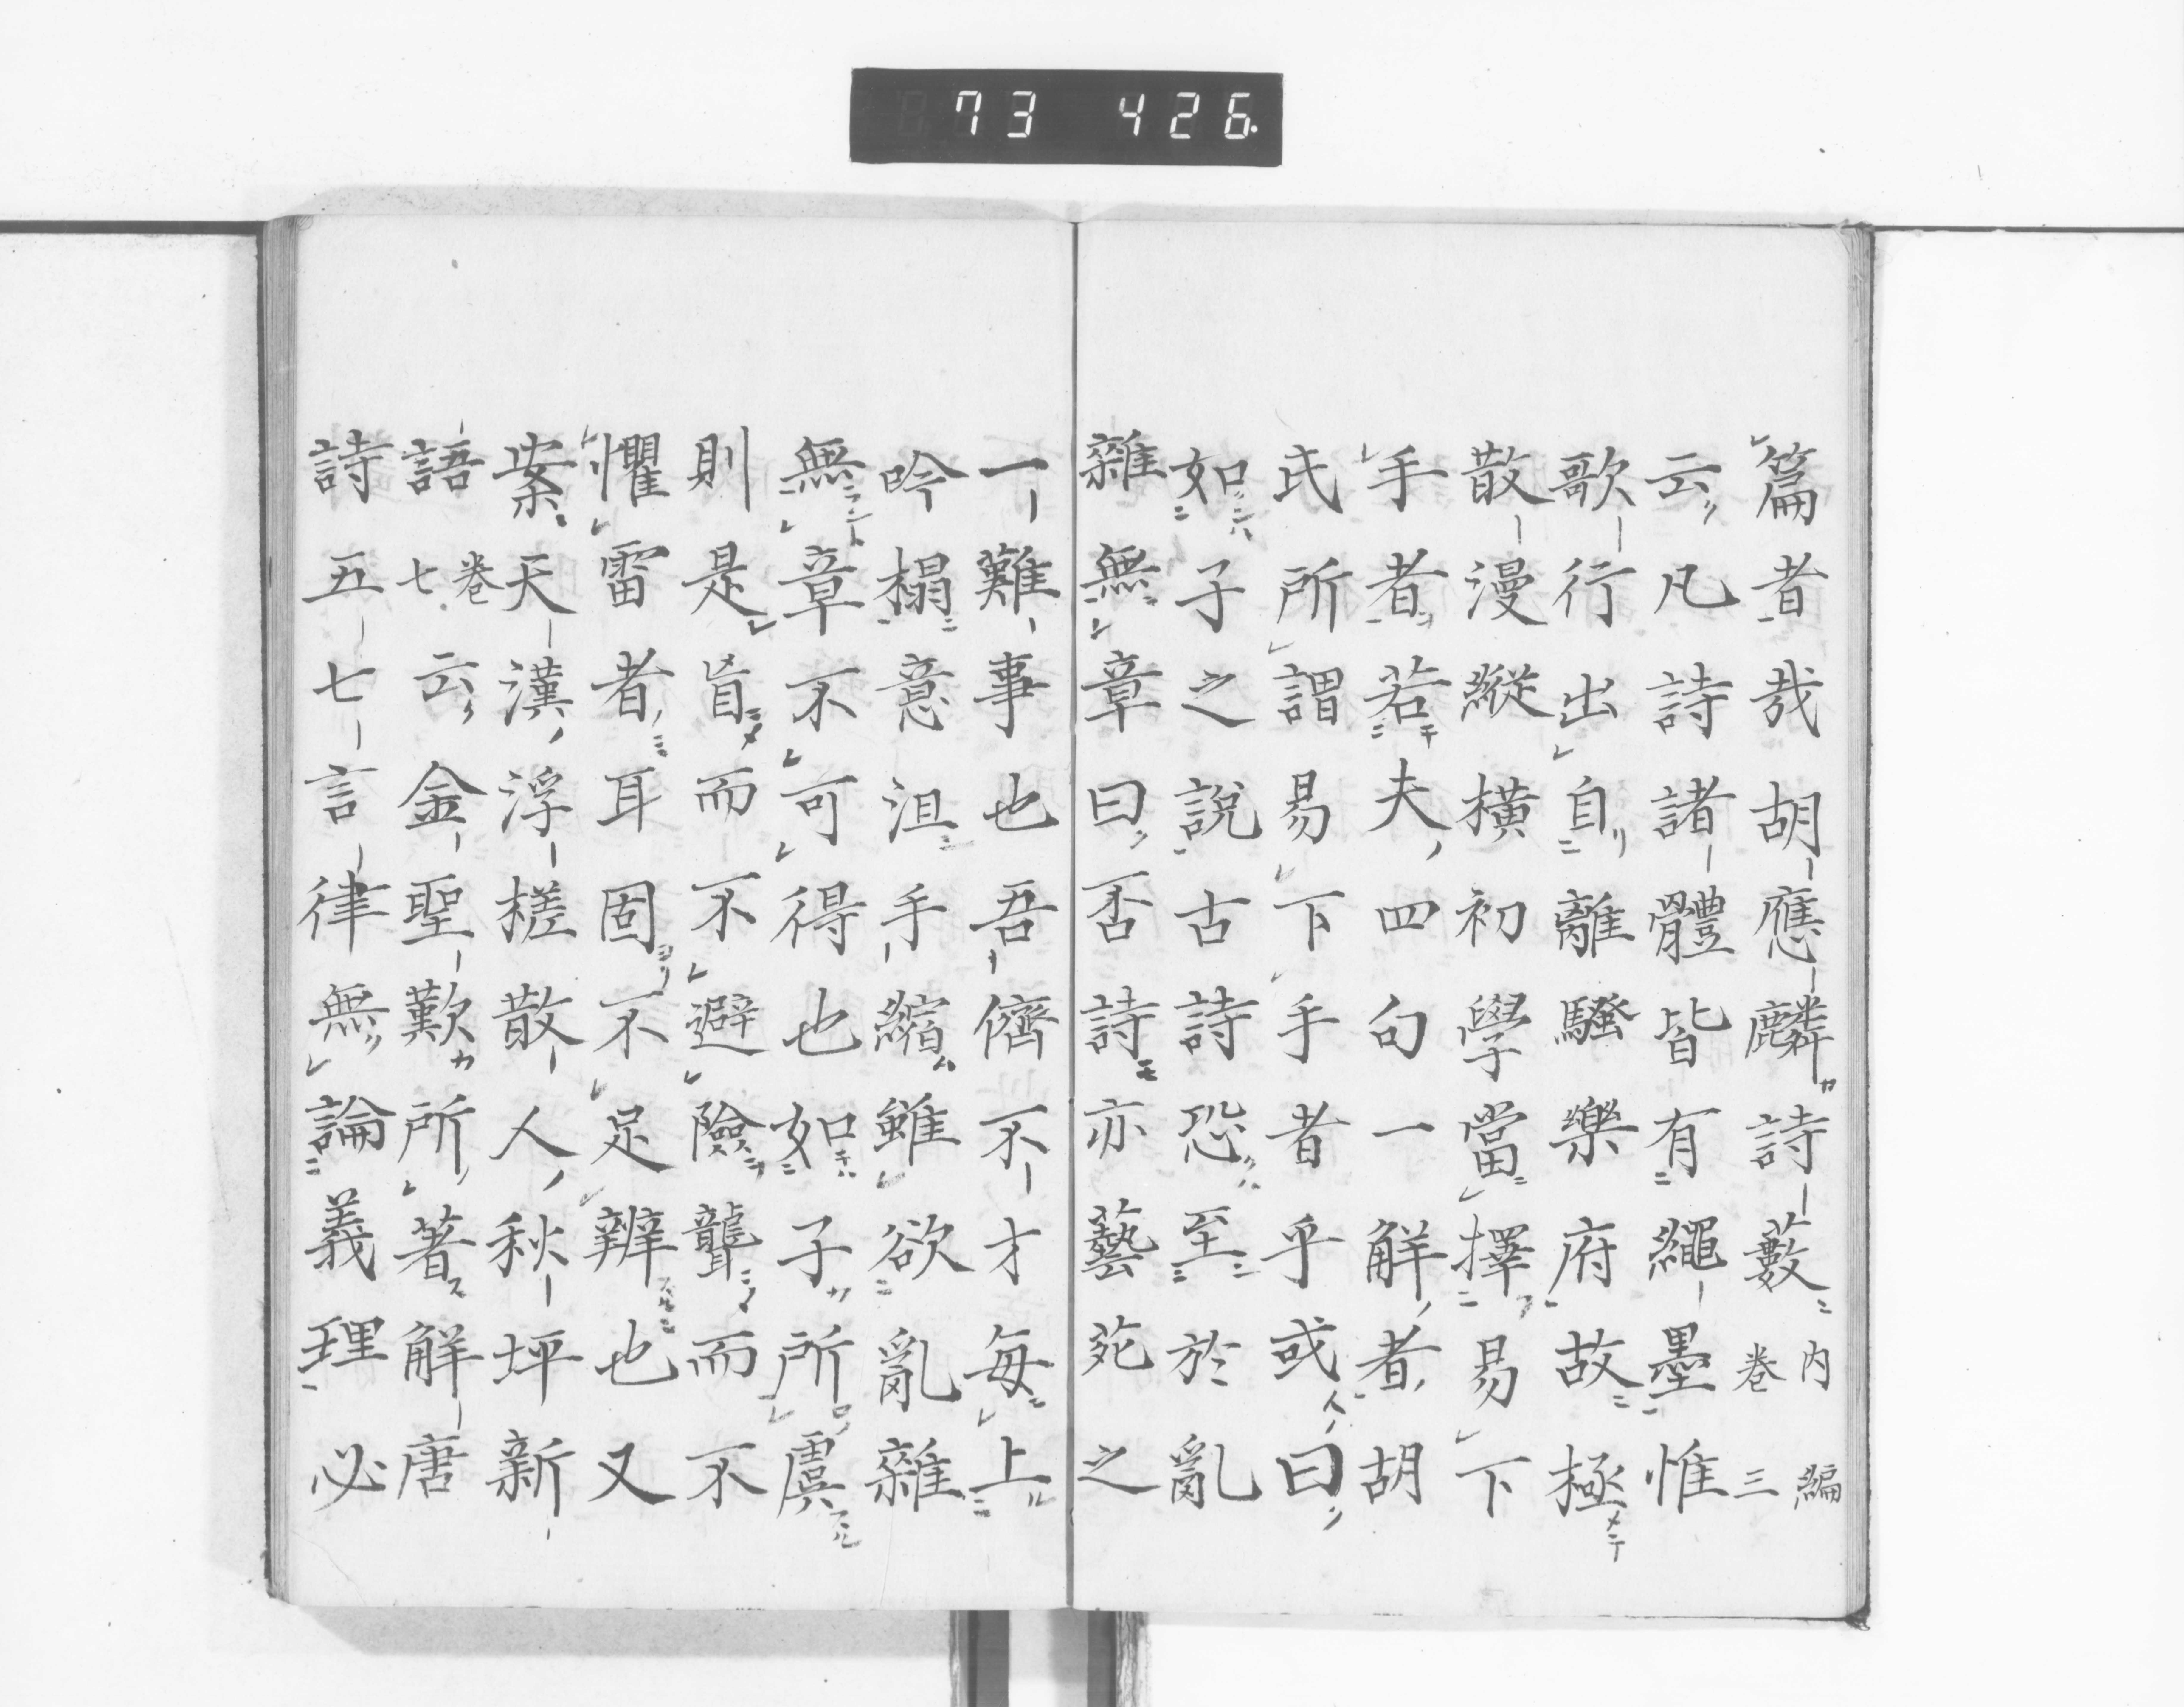 73 426.
篇者哉胡應麟詩藪内編卷三
云凡詩諸體皆有繩墨惟
歌行出自離騷樂府故極
散漫縱橫初學當擇易下
手者若夫四句一解者胡
氏所謂易下手者乎或曰
如子之說古詩恐至於亂
雜無章曰否詩亦藝苑之
一難事也吾儕不才每上
吟榻意沮手縮雖欲亂雜
無章不可得也如子所虞
則是盲而不避險聾而不
懼雷者耳固不足辨也又
案天漢浮槎散人秋坪新
語卷七云金聖歎所著解唐
詩五七言律無論義理必